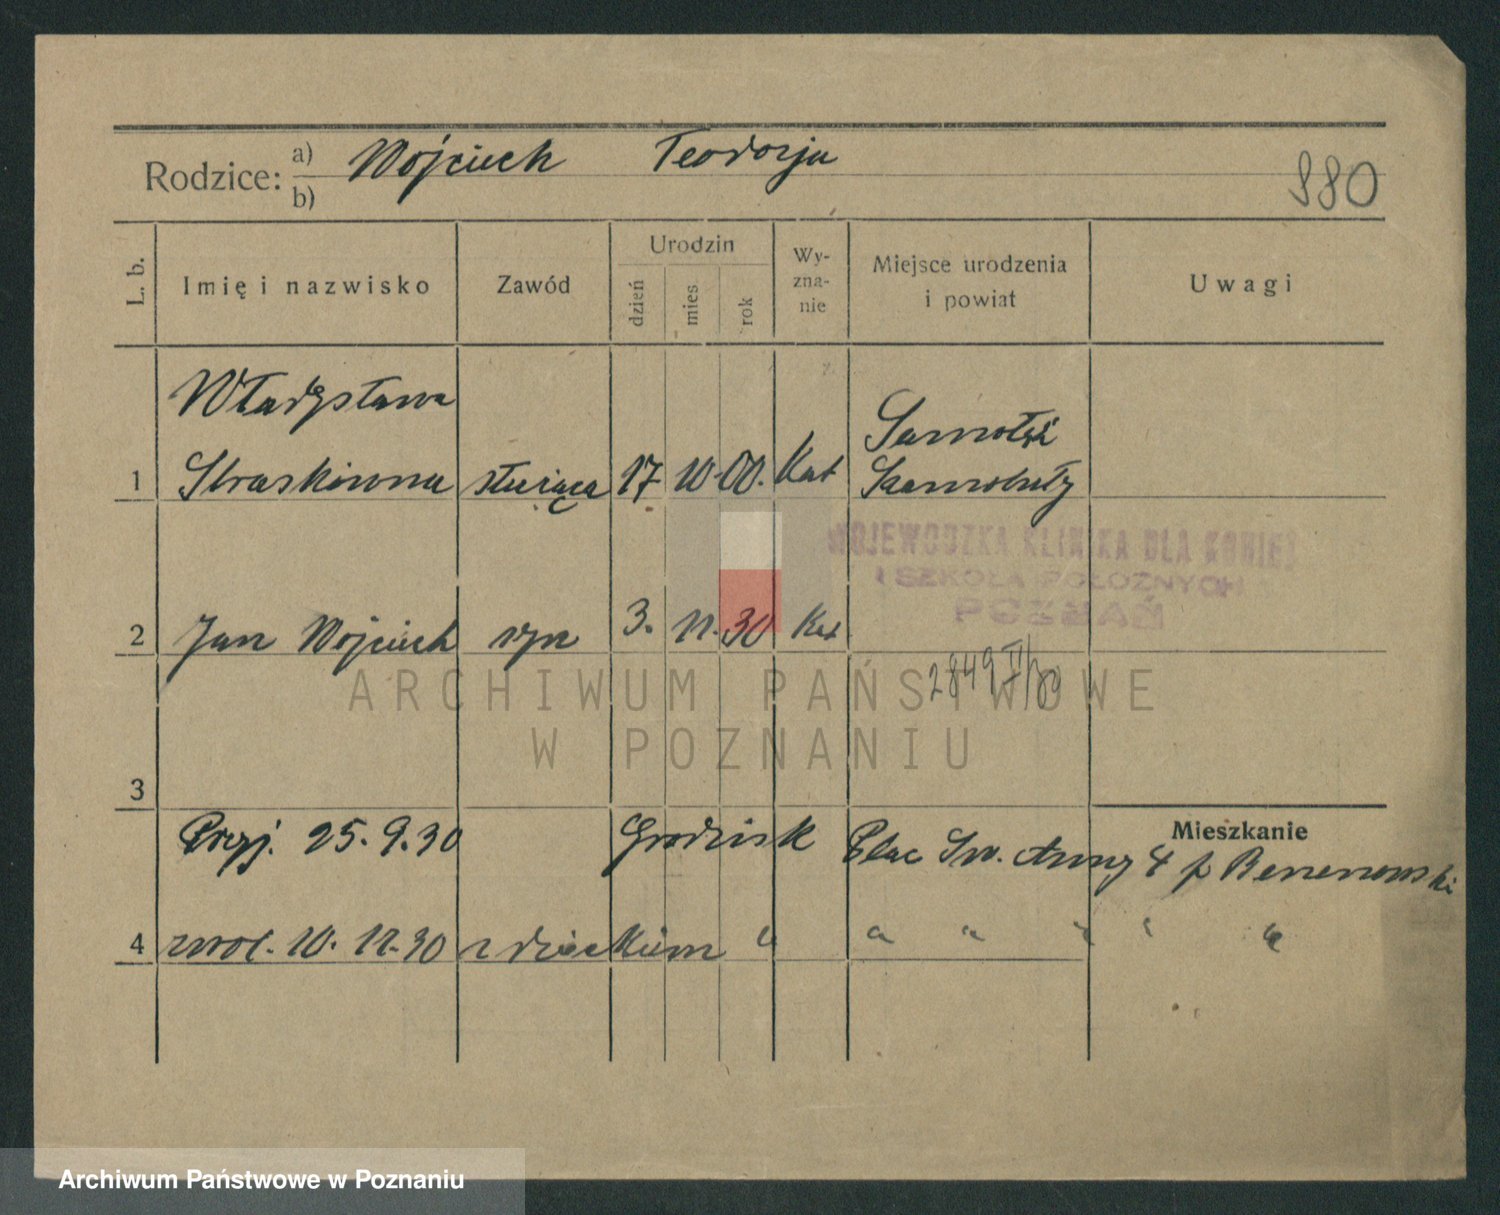 Rodzice: a) Wojciech Teodozja
b)
880
L. b. Imię i nazwisko Zawód Urodzin dzień mies rok Wy-zna-nie Miejsce urodzenia i powiat Uwagi
Władysława
Samołęż
1 Straskówna służąca 17 10. 00. Kat Szamotuły
WOJEWÓDZKA KLINIKA DLA KOBIET
I SZKOŁA POŁOŻNYCH
POZNAŃ
2 Jan Wojciech syn 3. 11. 30 Kat
2849 II/30
ARCHIWUM PAŃSTWOWE
W POZNANIU
3
Mieszkanie
Przyj. 25. 9. 30 Grodzisk Plac Św. Anny 4 p
4 zwol. 10. 11. 30 z dzieckiem " " " " " "
Archiwum Państwowe w Poznaniu